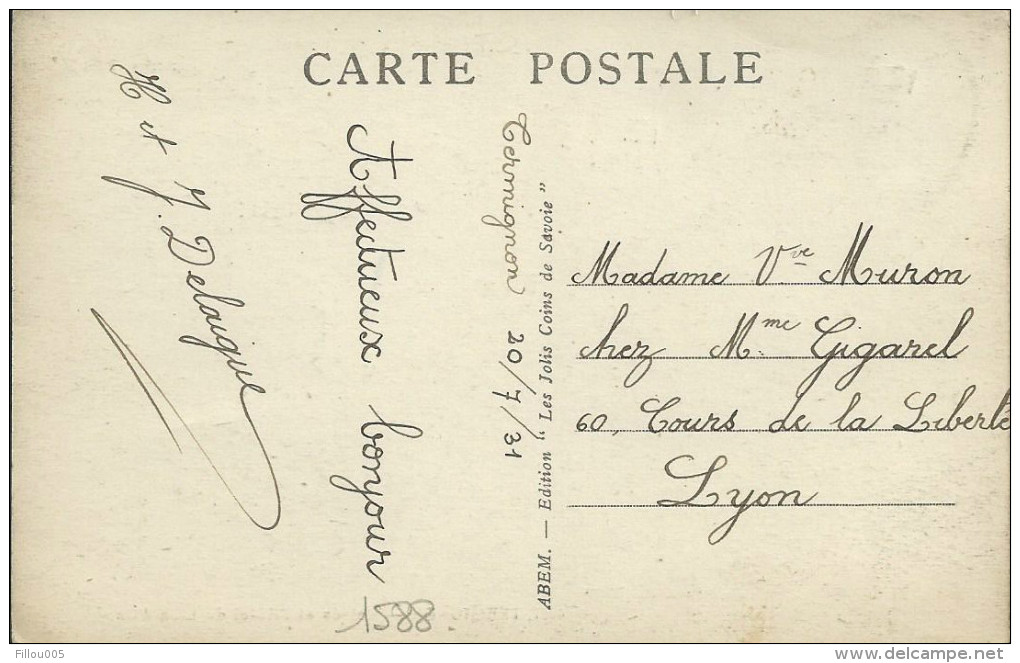 CARTE POSTALE
Termignon 20/7/31
Affectueux bonjour
H et J. Delaigue
ABEM. — Edition “ Les Jolis Coins de Savoie ”
Madame Vve Muron
chez Mme Gigarel
60, Cours de la Liberté
Lyon
1588.
Fillou005
delcampe.net